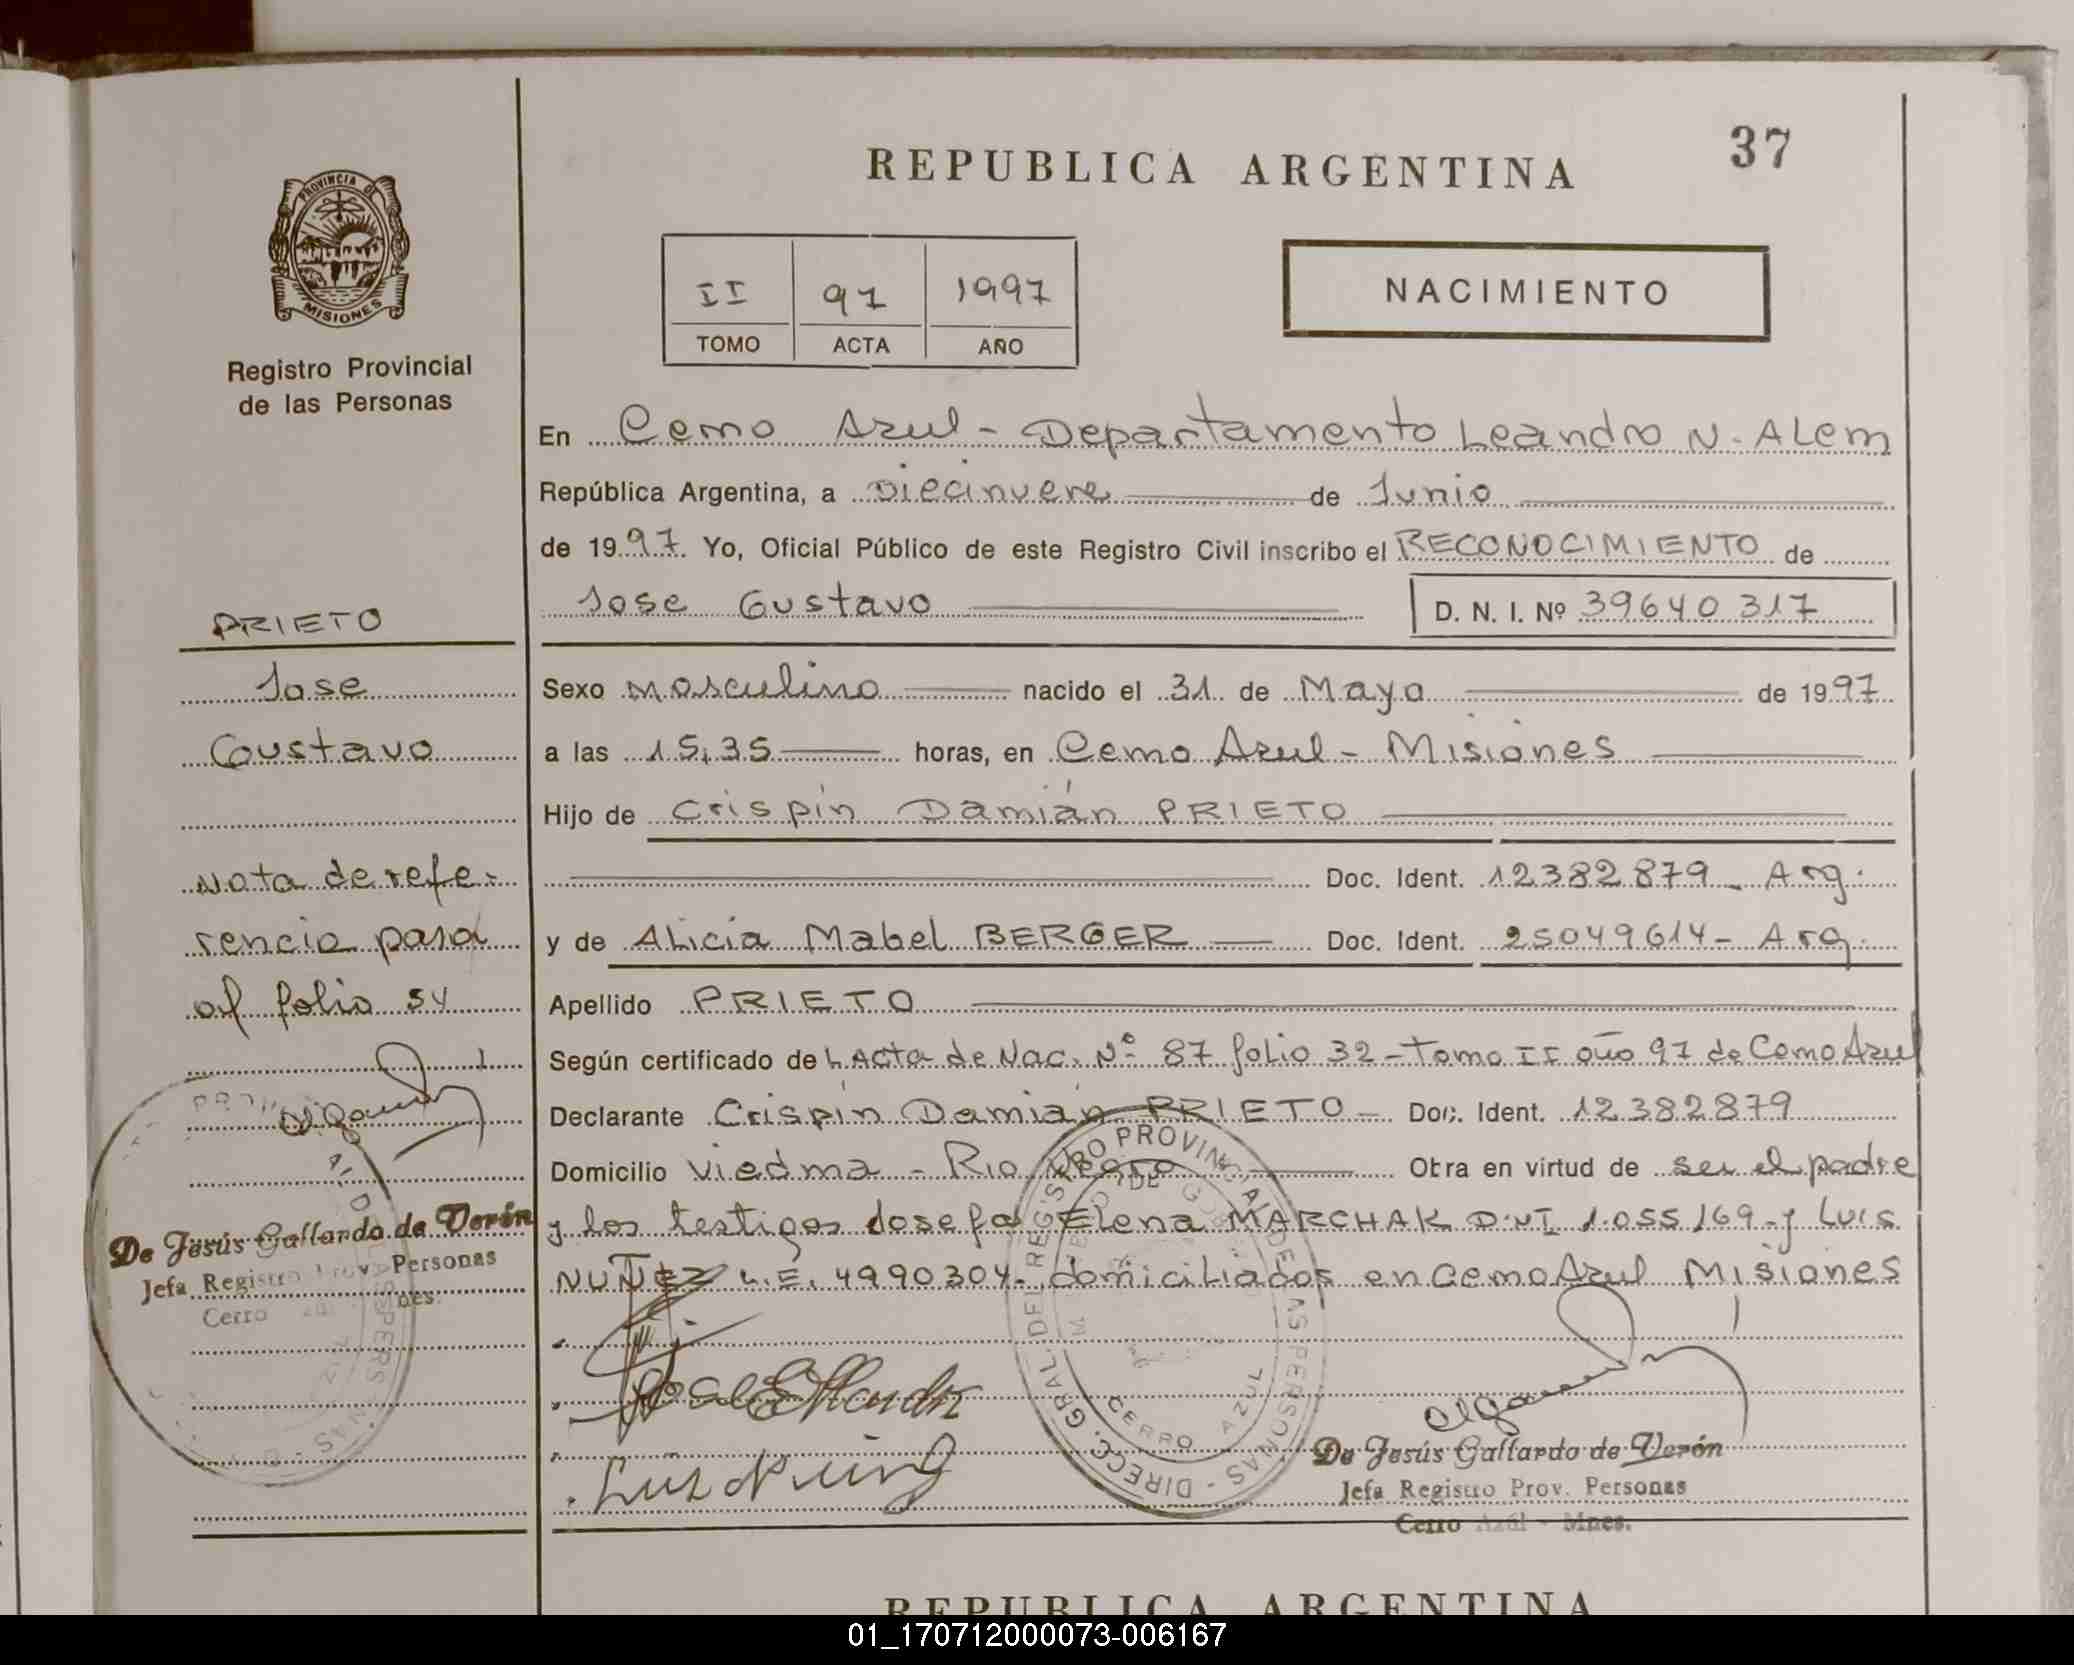 37
REPUBLICA ARGENTINA
PROVINCIA DE
MISIONES
Registro Provincial
de las Personas
II 97 1997
TOMO ACTA AÑO
NACIMIENTO
En Cerro Azul - Departamento Leandro N. Alem
República Argentina, a Diecinueve de Junio
de 1997 Yo, Oficial Público de este Registro Civil inscribo el RECONOCIMIENTO de
Jose Gustavo D. N. I. Nº 39640317
PRIETO
Jose
Gustavo
Nota de refe-
rencia pasa
al folio 54
De Jesús Gallardo de Verón
Jefa Registro Prov. Personas
Cerro
Sexo Masculino nacido el 31 de Mayo de 1997
a las 15,35 horas, en Cerro Azul - Misiones
Hijo de Crispín Damián PRIETO
Doc. Ident. 12382879 - Arg.
y de Alicia Mabel BERGER Doc. Ident. 25049614 - Arg.
Apellido PRIETO
Según certificado de Acta de Nac. Nº 87 folio 32 - Tomo II año 97 de Cerro Azul
Declarante Crispín Damián PRIETO - Doc. Ident. 12382879
Domicilio Viedma - Rio Negro Obra en virtud de ser el padre
y los testigos Josefa Elena MARCHAK D.N.I 1.055.169 - y Luis
NUÑEZ L.E. 4990304 - domiciliados en Cerro Azul Misiones
DIRECC. GRAL. DEL REGISTRO PROVINCIAL DE LAS PERSONAS
CERRO AZUL
Luis Nuñez
De Jesús Gallardo de Verón
Jefa Registro Prov. Personas
Cerro Azul - Mnes.
REPUBLICA ARGENTINA
01_170712000073-006167